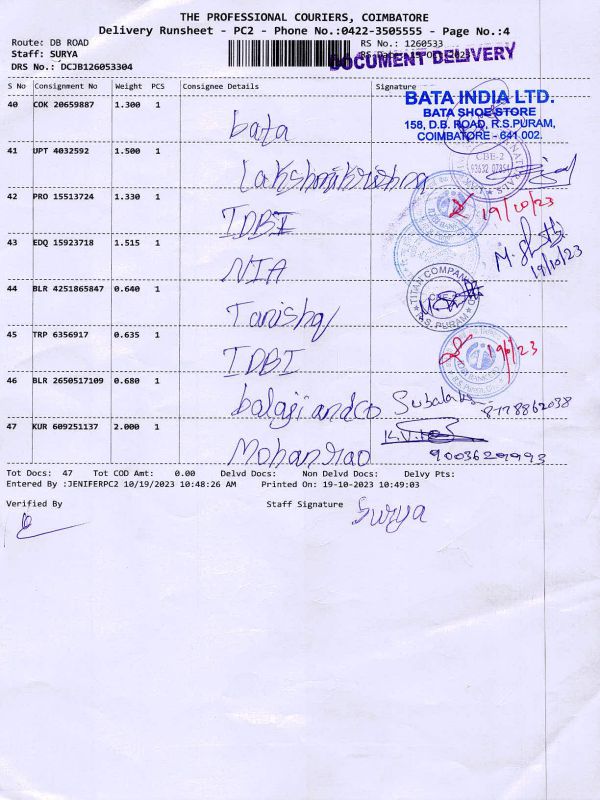 THE PROFESSIONAL COURIERS, COIMBATORE
Delivery Runsheet - PC2 - Phone No.:0422-3505555 - Page No.:4
Route: DB ROAD
RS No.: 1260533
Staff: SURYA
DOCUMENT DELIVERY
DRS No.: DCJB126053304
S No Consignment No Weight PCS Consignee Details Signature
BATA INDIA LTD.
BATA SHOE STORE
158, D.B. ROAD, R.S.PURAM,
COIMBATORE - 641 002.
40 COK 20659887 1.300 1 bata
41 UPT 4032592 1.500 1 Lakshmikrishna
CBE-2
42 PRO 15513724 1.330 1 IDBI 19/10/23
43 EDQ 15923718 1.515 1 NIA
19/10/23
44 BLR 4251865847 0.640 1 Tanishq
TITAN COMPANY
R.S. PURAM
45 TRP 6356917 0.635 1 IDBI
46 BLR 2650517109 0.680 1 balaji and co
8778862038
47 KUR 609251137 2.000 1 Mohanrao
9003629993
Tot Docs: 47 Tot COD Amt: 0.00 Delvd Docs: Non Delvd Docs: Delvy Pts:
Entered By :JENIFERPC2 10/19/2023 10:48:26 AM Printed On: 19-10-2023 10:49:03
Verified By Staff Signature Surya